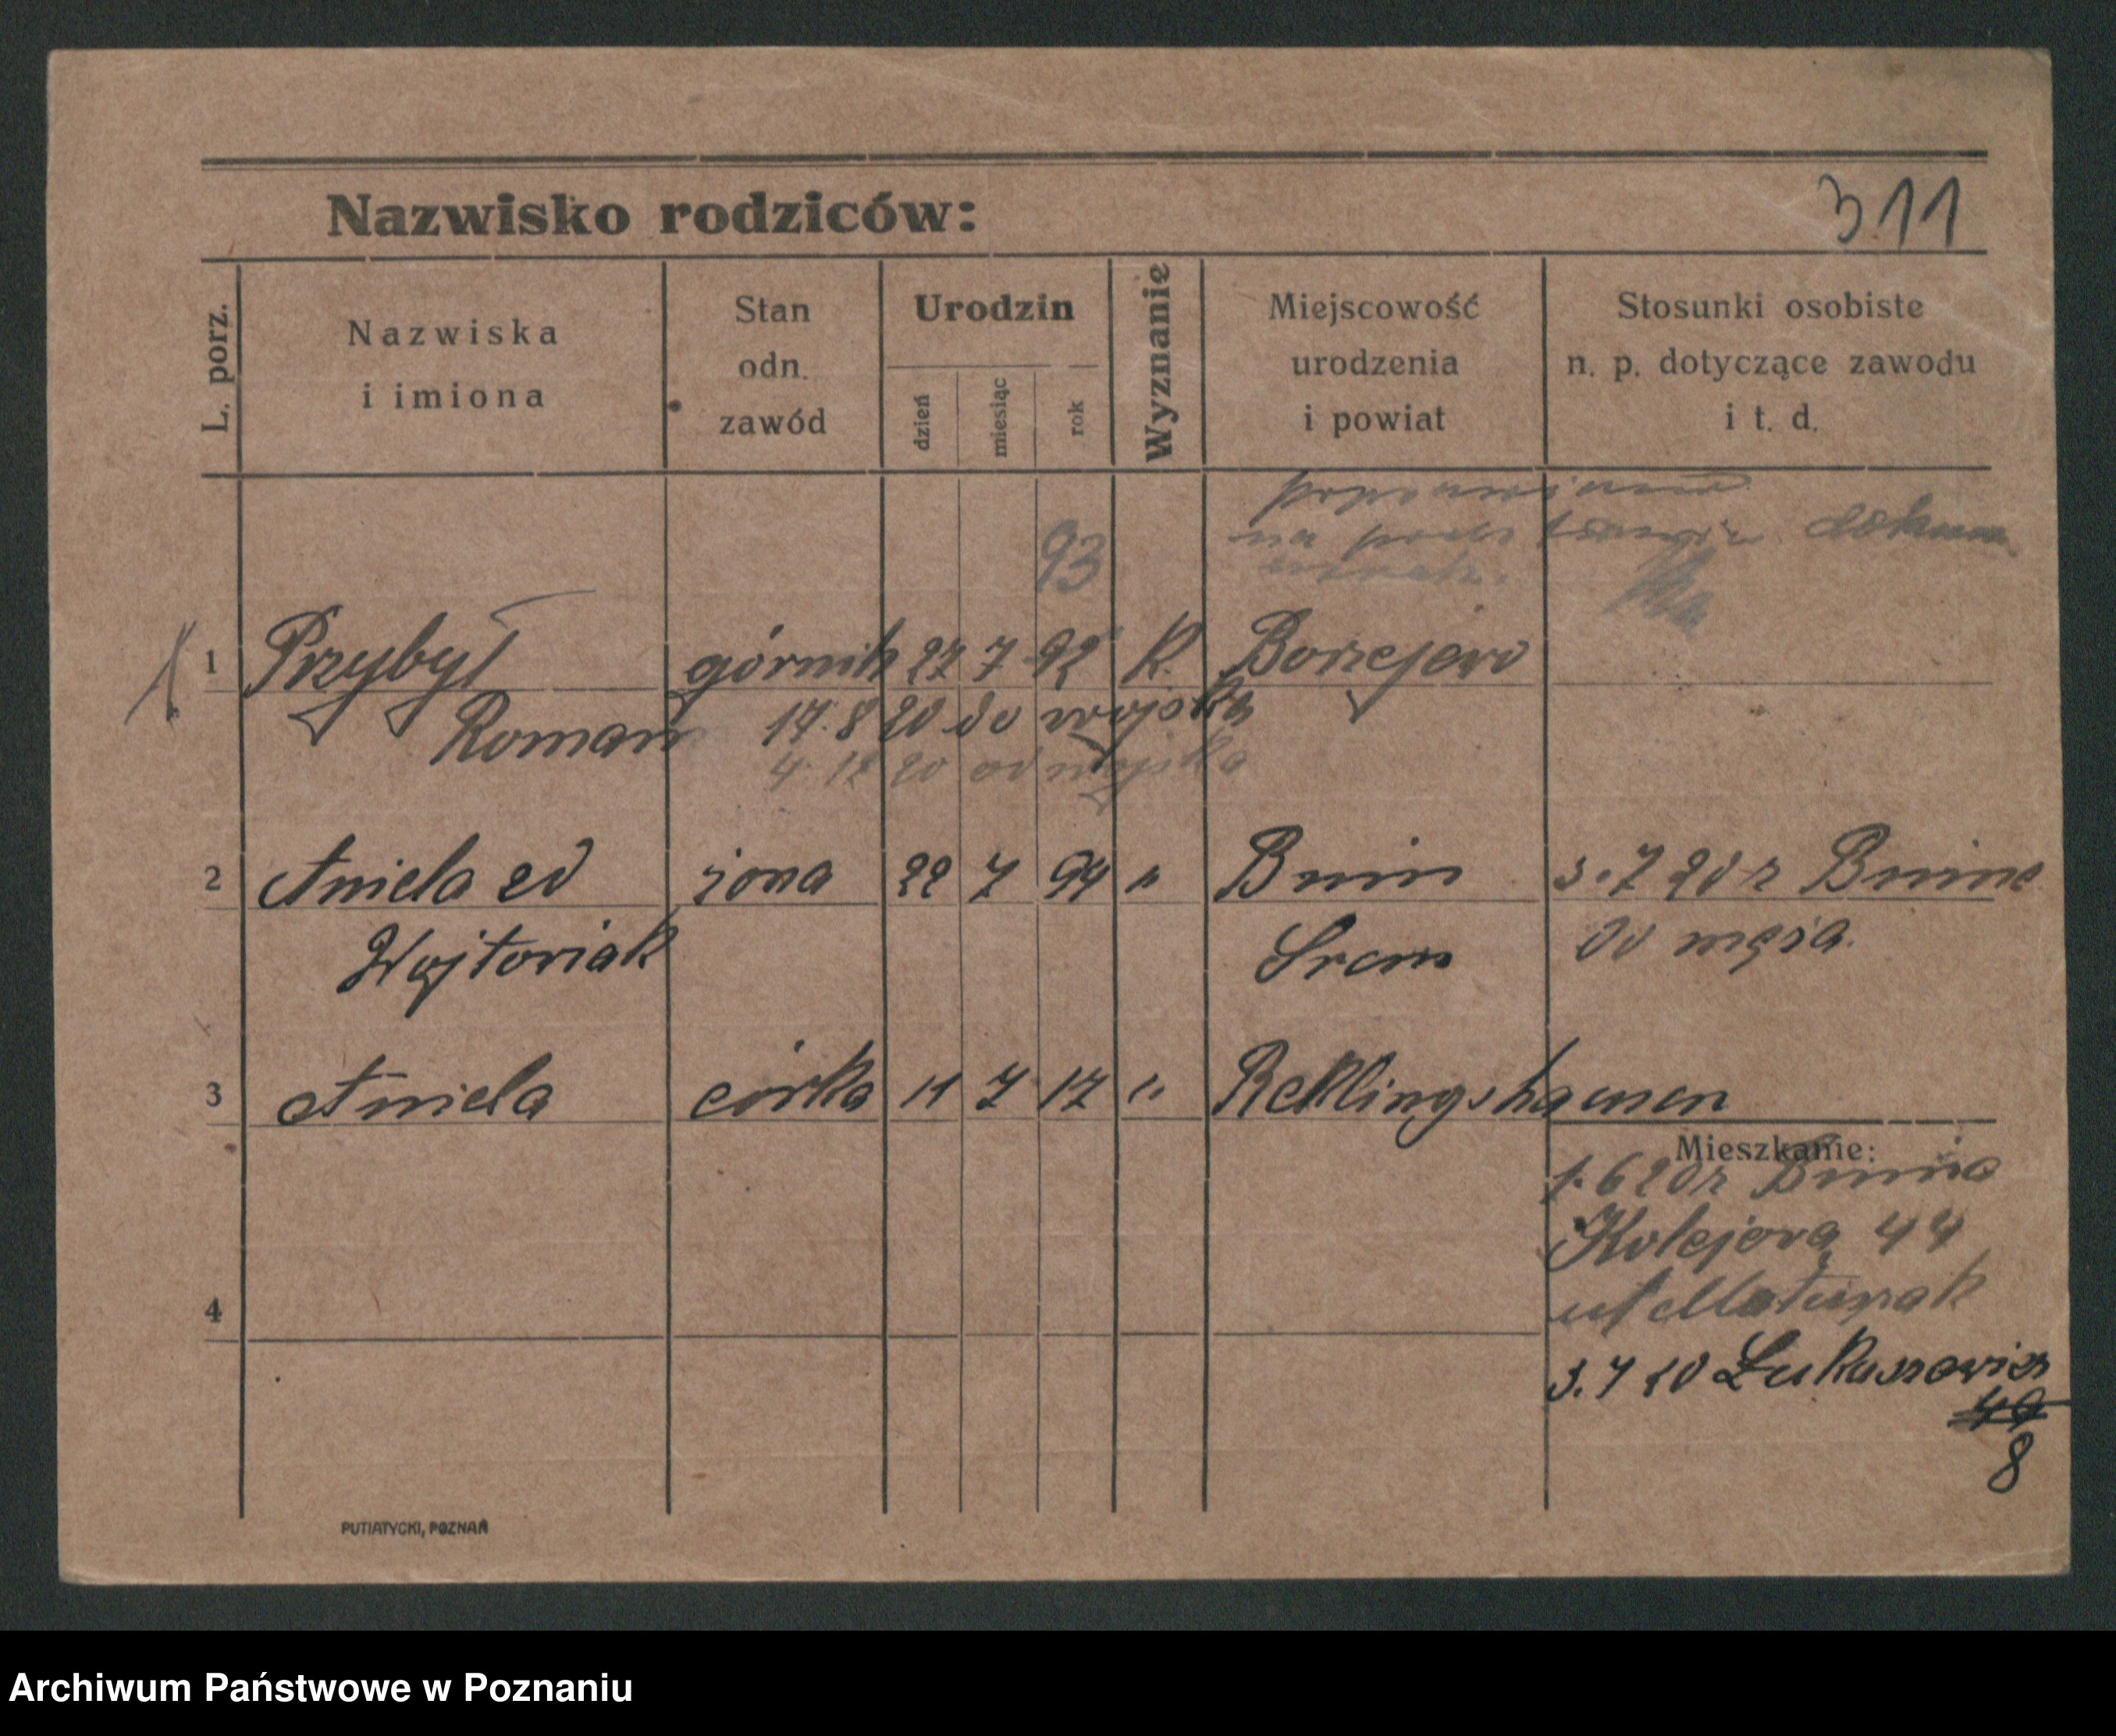 Nazwisko rodziców: 311
L. porz.
Nazwiska
i imiona
Stan
odn.
zawód
Urodzin
dzień
miesiąc
rok
Wyznanie
Miejscowość
urodzenia
i powiat
Stosunki osobiste
n. p. dotyczące zawodu
i t. d.
poprawiono
na podstawie dokum
93
1 Przybył górnik 27 7 92 K. Borzejewo
Roman 17.8 20 do wojska
4.12 20 od wojska
2 Aniela zd żona 22 7 94 " Bnin 3.7 20 z Bnina
Wojtoniak Srem do męża.
3 Aniela córka 11 7 17 " Reklingshausen
Mieszkanie:
1.6 20 z Bnina
Kolejowa 44
4
3.7 20 Łukaszewicz
49
8
PUTIATYCKI, POZNAŃ
Archiwum Państwowe w Poznaniu